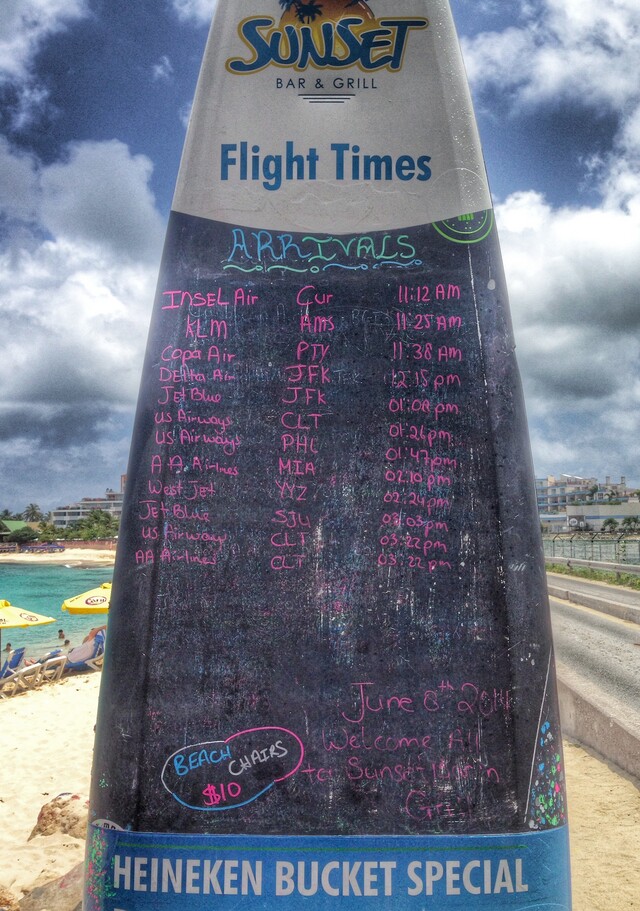 SUNSET
BAR & GRILL
Flight Times
ARRIVALS
INSEL Air Cur 11:12 AM
KLM AMS 11:25 AM
Copa Air PTY 11:38 AM
Delta Air JFK 12:15 pm
JetBlue JFK 01:08 pm
US Airways CLT 01:26 pm
US Airways PHL 01:47 pm
A A. Airlines MIA 02:10 pm
West Jet YYZ 02:24 pm
JetBlue SJU 03:03 pm
US Airways CLT 03:22 pm
AA Airlines CLT 03:22 pm
June 8th
Welcome All
to Sunset
BEACH CHAIRS
$10
HEINEKEN BUCKET SPECIAL